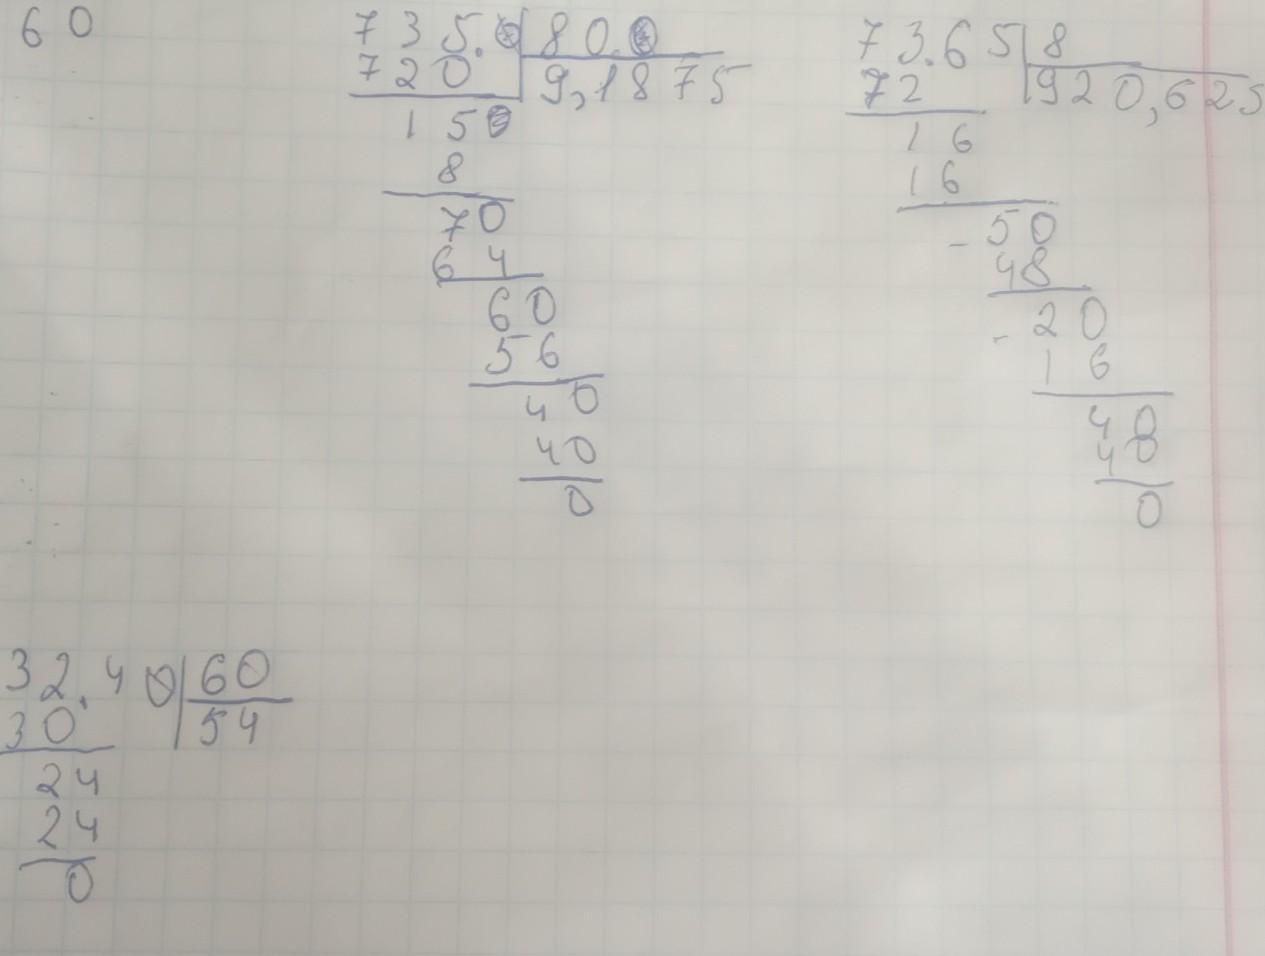 60
735.0 80.0
720 9,1875
150
8
70
64
60
56
40
40
0
73.65 8
72 920,625
16
16
-50
48
-20
16
40
40
0
32.40 60
30 54
24
24
0